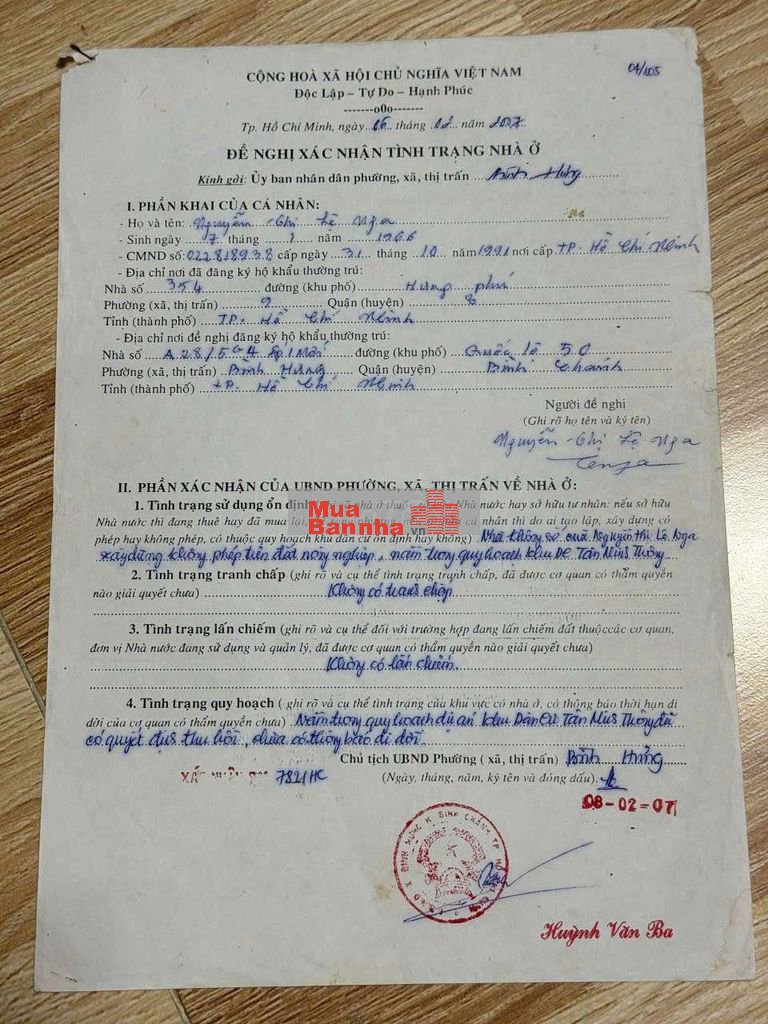 04/105
CỘNG HOÀ XÃ HỘI CHỦ NGHĨA VIỆT NAM
Độc Lập – Tự Do – Hạnh Phúc
-------o0o-------
Tp. Hồ Chí Minh, ngày 06 tháng 02 năm 2007
ĐỀ NGHỊ XÁC NHẬN TÌNH TRẠNG NHÀ Ở
Kính gởi: Ủy ban nhân dân phường, xã, thị trấn Bình Hưng
I. PHẦN KHAI CỦA CÁ NHÂN:
- Họ và tên: Nguyễn Thị Lệ Nga
- Sinh ngày 7 tháng 1 năm 1966
- CMND số: 022818938 cấp ngày 31 tháng 10 năm 1991 nơi cấp TP. Hồ Chí Minh
- Địa chỉ nơi đã đăng ký hộ khẩu thường trú:
Nhà số 354 đường (khu phố) Hưng phú
Phường (xã, thị trấn) 9 Quận (huyện) 8
Tỉnh (thành phố) TP. Hồ Chí Minh
- Địa chỉ nơi đề nghị đăng ký hộ khẩu thường trú:
Nhà số A28/5 đường (khu phố) Quốc lộ 50
Phường (xã, thị trấn) Bình Hưng Quận (huyện) Bình Chánh
Tỉnh (thành phố) TP. Hồ Chí Minh
Người đề nghị
(Ghi rõ họ tên và ký tên)
Nguyễn Thị Lệ Nga
II. PHẦN XÁC NHẬN CỦA UBND PHƯỜNG, XÃ, THỊ TRẤN VỀ NHÀ Ở:
1. Tình trạng sử dụng ổn định nhà ở thuộc Nhà nước hay sở hữu tư nhân: nếu sở hữu
Nhà nước thì đang thuê hay đã mua lại, cá nhân thì do ai tạo lập, xây dựng có
phép hay không phép, có thuộc quy hoạch khu dân cư ổn định hay không) Nhà không số của Nguyễn Thị Lệ Nga
xây dựng không phép trên đất nông nghiệp, nằm trong quy hoạch khu DC Tân Minh Thông
2. Tình trạng tranh chấp (ghi rõ và cụ thể tình trạng tranh chấp, đã được cơ quan có thẩm quyền
nào giải quyết chưa) Không có tranh chấp
3. Tình trạng lấn chiếm (ghi rõ và cụ thể đối với trường hợp đang lấn chiếm đất thuộccác cơ quan,
đơn vị Nhà nước đang sử dụng và quản lý, đã được cơ quan có thẩm quyền nào giải quyết chưa)
Không có lấn chiếm.
4. Tình trạng quy hoạch ( ghi rõ và cụ thể tình trạng của khu vực có nhà ở, có thông báo thời hạn di
dời của cơ quan có thẩm quyền chưa) Nằm trong quy hoạch dự án khu Dân Cư Tân Minh Thông đã
có quyết định thu hồi, chưa có thông báo di dời.
Chủ tịch UBND Phường ( xã, thị trấn) Bình Hưng
7821HC
(Ngày, tháng, năm, ký tên và đóng dấu).
08-02-07
Huỳnh Văn Ba
Mua
Bannha.vn